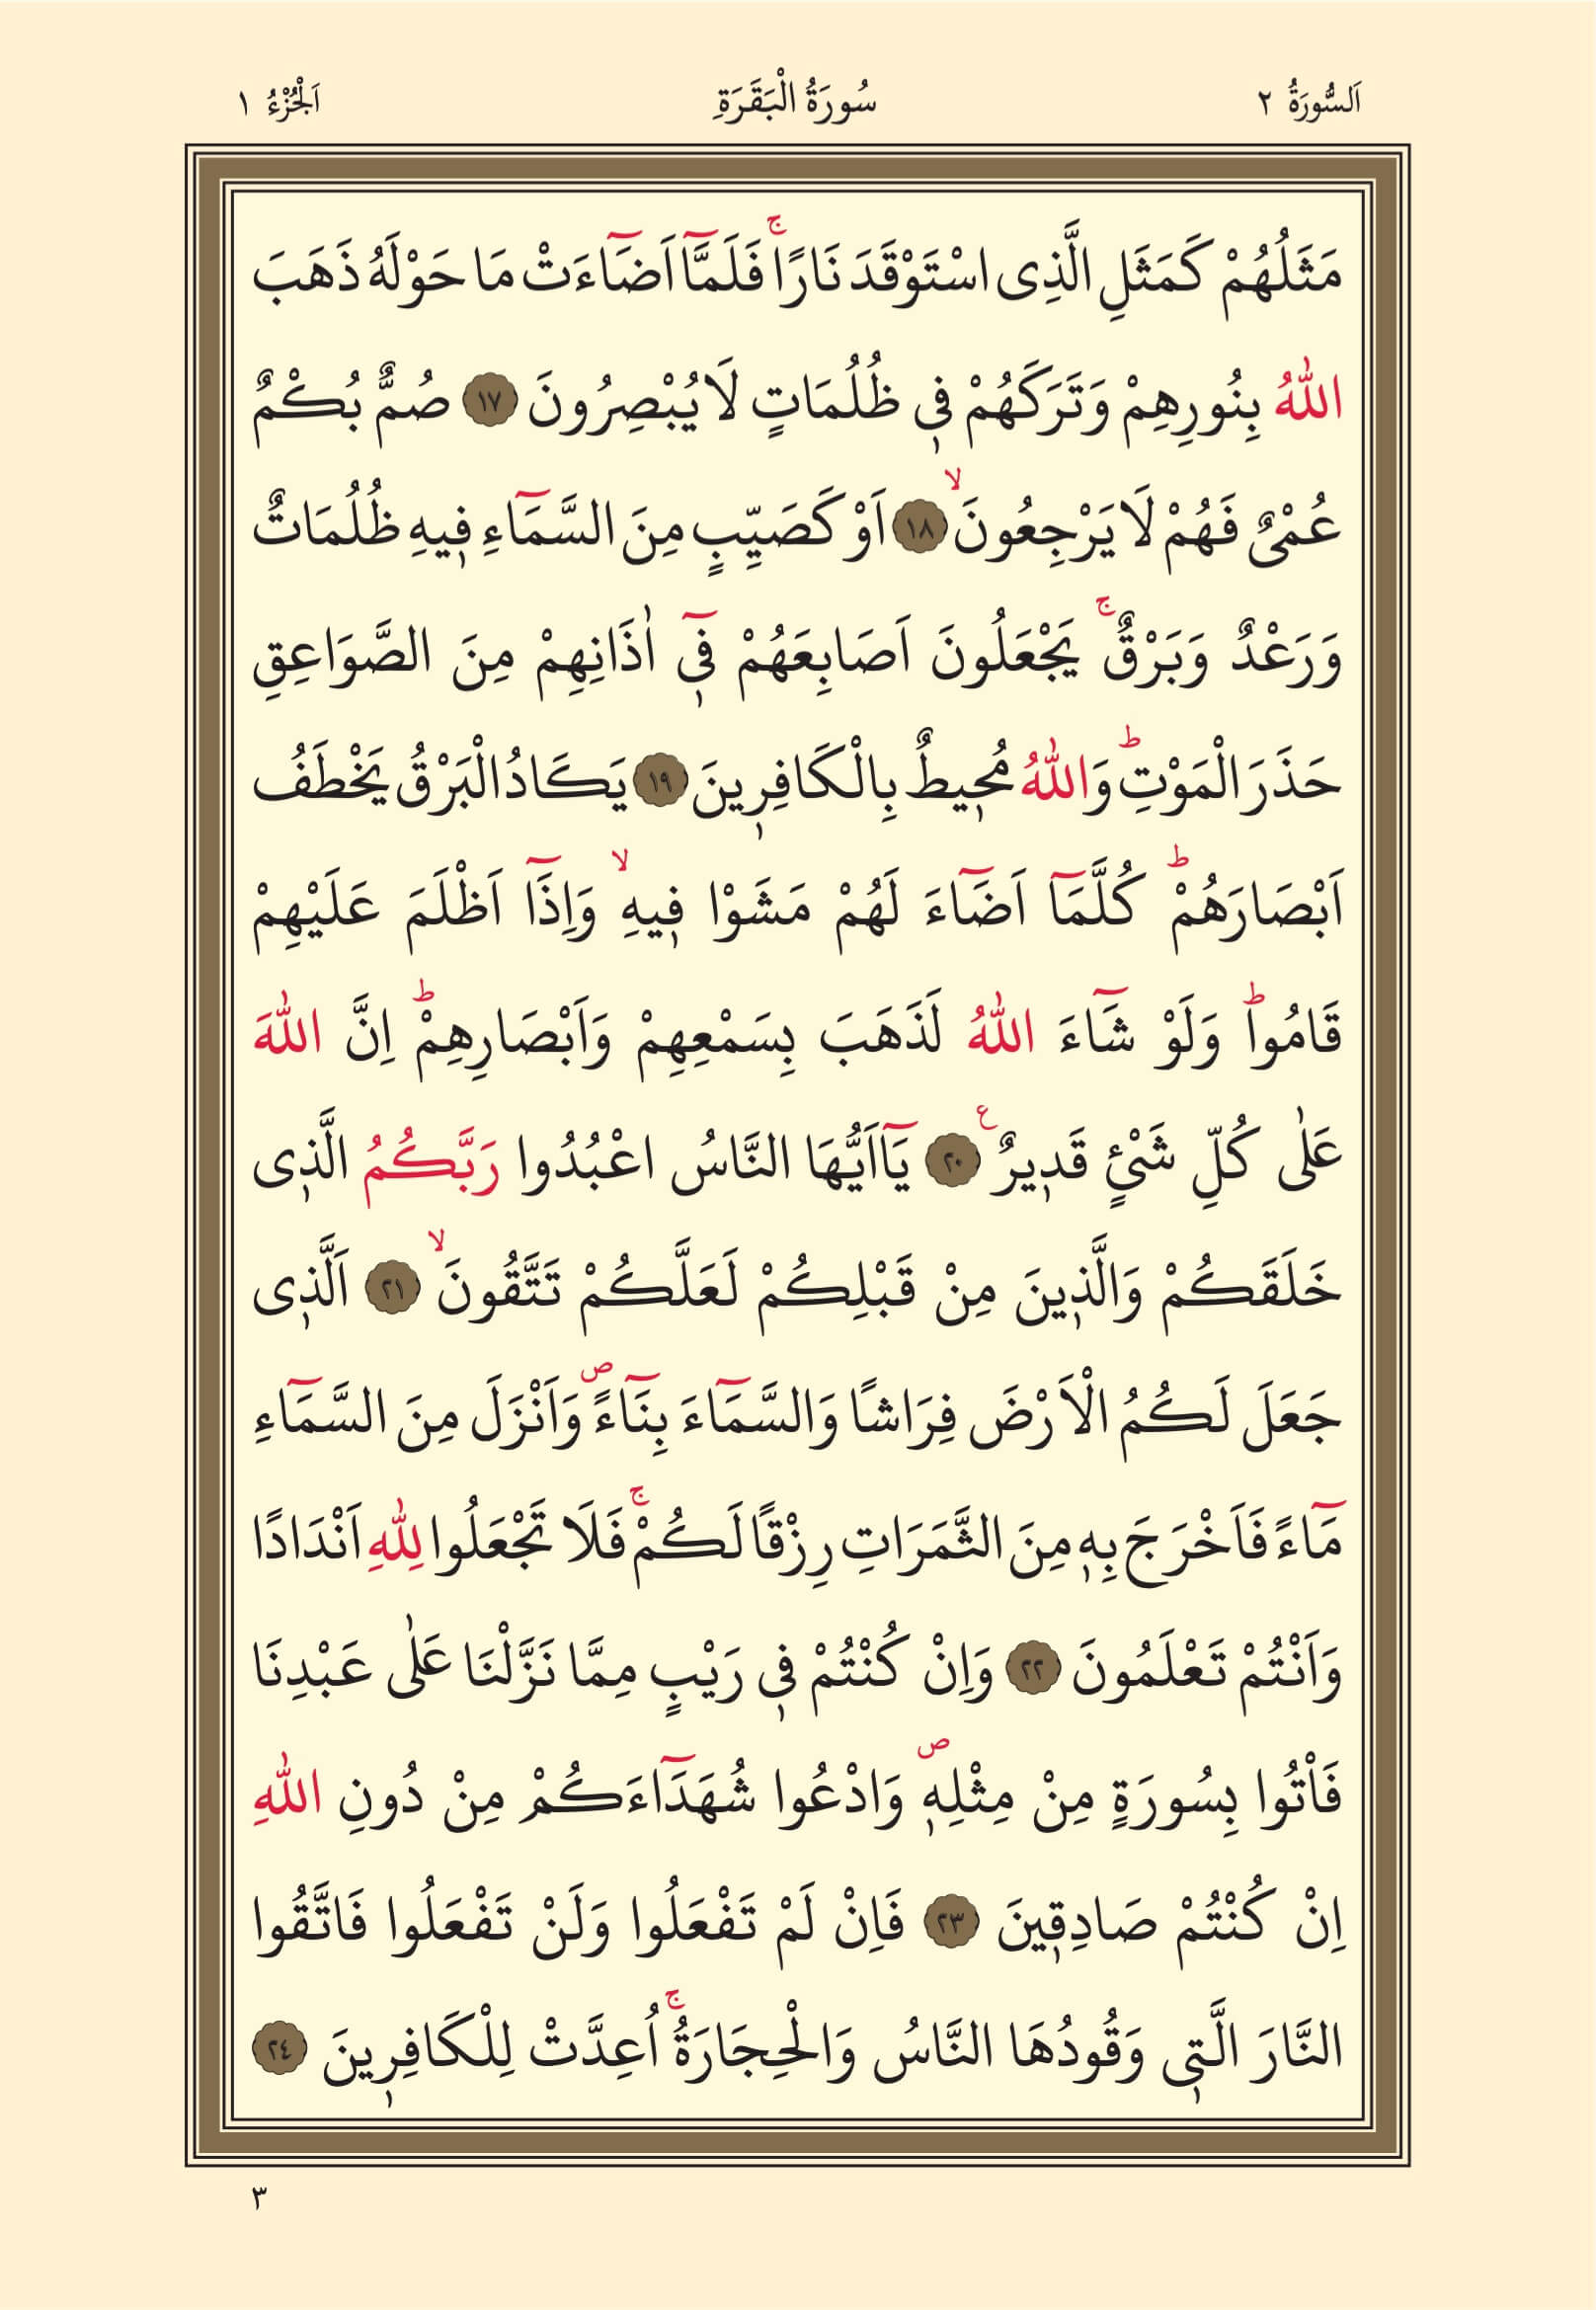 اَلسُّورَةُ ٢ سُورَةُ الْبَقَرَةِ اَلْجُزْءُ ١
مَثَلُهُمْ كَمَثَلِ الَّذِى اسْتَوْقَدَ نَارًاۚ فَلَمَّٓا اَضَٓاءَتْ مَا حَوْلَهُ ذَهَبَ
اللّٰهُ بِنُورِهِمْ وَتَرَكَهُمْ فٖى ظُلُمَاتٍ لَا يُبْصِرُونَ ١٧ صُمٌّ بُكْمٌ
عُمْىٌ فَهُمْ لَا يَرْجِعُونَۙ ١٨ اَوْ كَصَيِّبٍ مِنَ السَّمَٓاءِ فٖيهِ ظُلُمَاتٌ
وَرَعْدٌ وَبَرْقٌۚ يَجْعَلُونَ اَصَابِعَهُمْ فٖٓى اٰذَانِهِمْ مِنَ الصَّوَاعِقِ
حَذَرَ الْمَوْتِؕ وَاللّٰهُ مُحٖيطٌ بِالْكَافِرٖينَ ١٩ يَكَادُ الْبَرْقُ يَخْطَفُ
اَبْصَارَهُمْؕ كُلَّمَٓا اَضَٓاءَ لَهُمْ مَشَوْا فٖيهِۙ وَاِذَٓا اَظْلَمَ عَلَيْهِمْ
قَامُواؕ وَلَوْ شَٓاءَ اللّٰهُ لَذَهَبَ بِسَمْعِهِمْ وَاَبْصَارِهِمْؕ اِنَّ اللّٰهَ
عَلٰى كُلِّ شَىْءٍ قَدٖيرٌ ع ٢٠ يَٓا اَيُّهَا النَّاسُ اعْبُدُوا رَبَّكُمُ الَّذٖى
خَلَقَكُمْ وَالَّذٖينَ مِنْ قَبْلِكُمْ لَعَلَّكُمْ تَتَّقُونَۙ ٢١ اَلَّذٖى
جَعَلَ لَكُمُ الْاَرْضَ فِرَاشًا وَالسَّمَٓاءَ بِنَٓاءً ص وَاَنْزَلَ مِنَ السَّمَٓاءِ
مَٓاءً فَاَخْرَجَ بِهٖ مِنَ الثَّمَرَاتِ رِزْقًا لَكُمْۚ فَلَا تَجْعَلُوا لِلّٰهِ اَنْدَادًا
وَاَنْتُمْ تَعْلَمُونَ ٢٢ وَاِنْ كُنْتُمْ فٖى رَيْبٍ مِمَّا نَزَّلْنَا عَلٰى عَبْدِنَا
فَاْتُوا بِسُورَةٍ مِنْ مِثْلِهٖ ص وَادْعُوا شُهَدَٓاءَكُمْ مِنْ دُونِ اللّٰهِ
اِنْ كُنْتُمْ صَادِقٖينَ ٢٣ فَاِنْ لَمْ تَفْعَلُوا وَلَنْ تَفْعَلُوا فَاتَّقُوا
النَّارَ الَّتٖى وَقُودُهَا النَّاسُ وَالْحِجَارَةُۚ اُعِدَّتْ لِلْكَافِرٖينَ ٢٤
٣